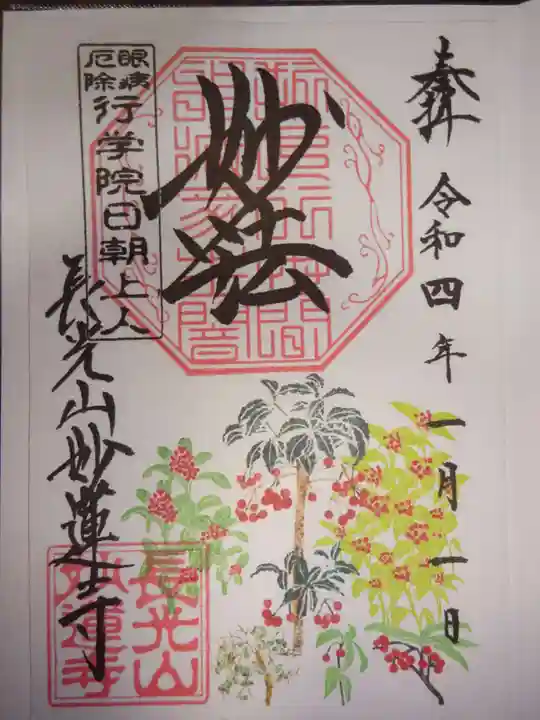 奉拝 令和四年 一月一日
妙法
眼病
厄除
行学院日朝上人
長光山妙蓮寺
長光山
妙蓮寺